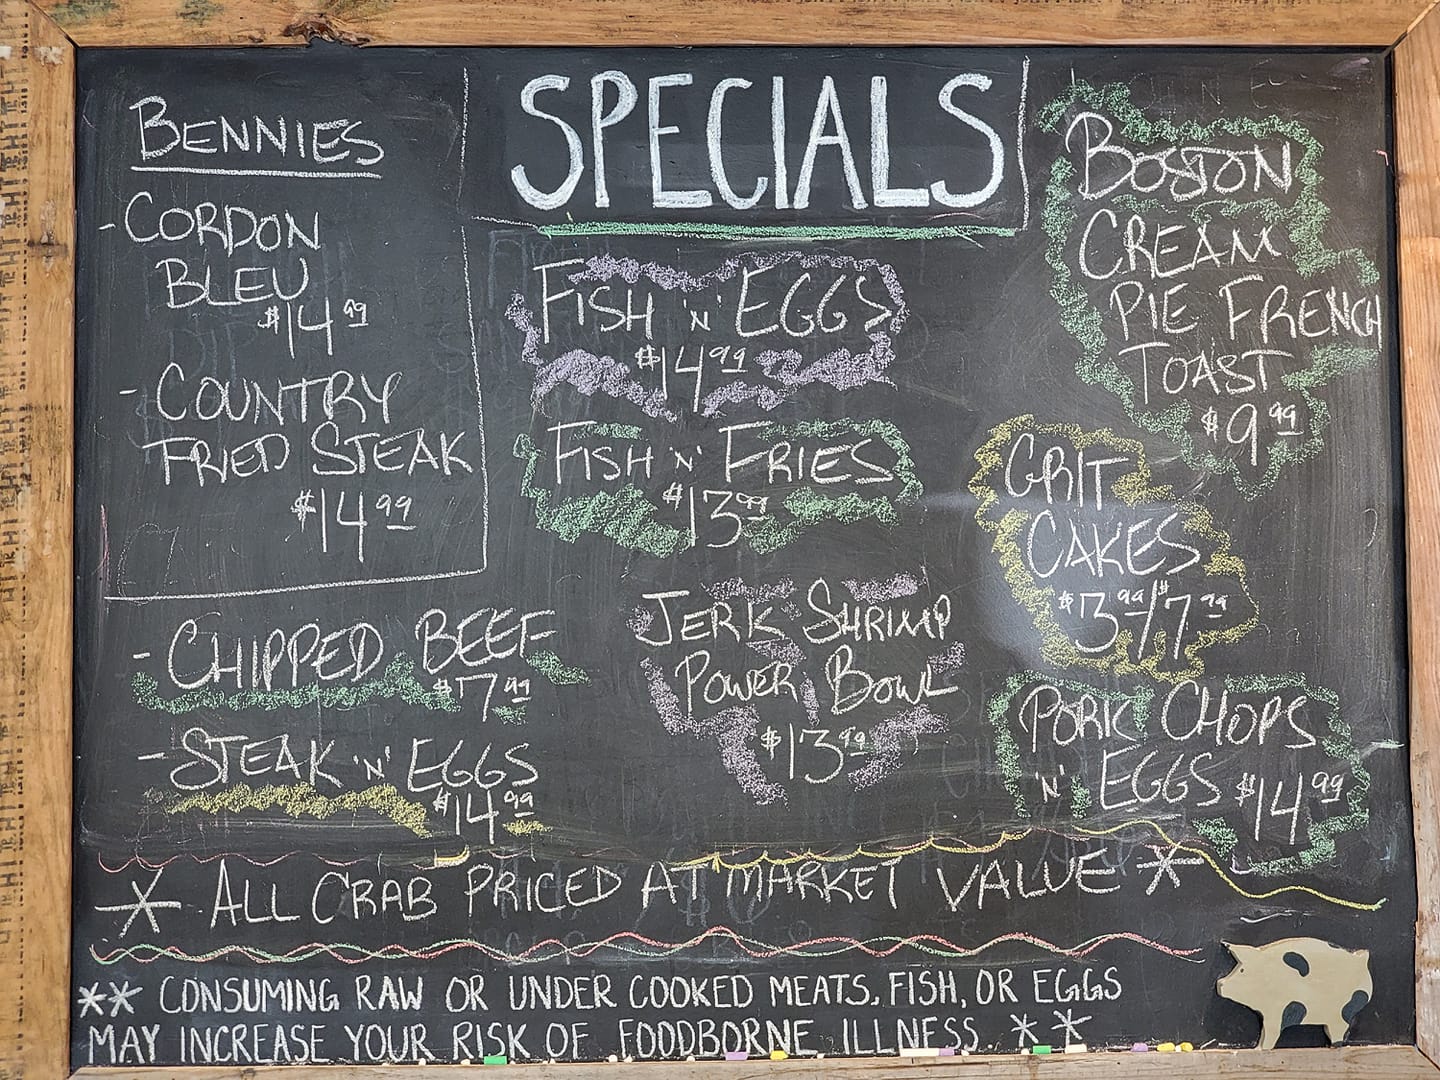 SPECIALS
BENNIES
-CORDON
BLEU
$14 99
-COUNTRY
FRIED STEAK
$14 99
-CHIPPED BEEF
$7 99
-STEAK 'N' EGGS
$14 99
FISH 'N' EGGS
$14 99
FISH 'N' FRIES
$13 99
JERK SHRIMP
POWER BOWL
$13 99
BOSTON
CREAM
PIE FRENCH
TOAST
$9 99
GRIT
CAKES
$3 99/$7 99
PORK CHOPS
'N' EGGS $14 99
* ALL CRAB PRICED AT MARKET VALUE *
** CONSUMING RAW OR UNDER COOKED MEATS, FISH, OR EGGS
MAY INCREASE YOUR RISK OF FOODBORNE ILLNESS. **